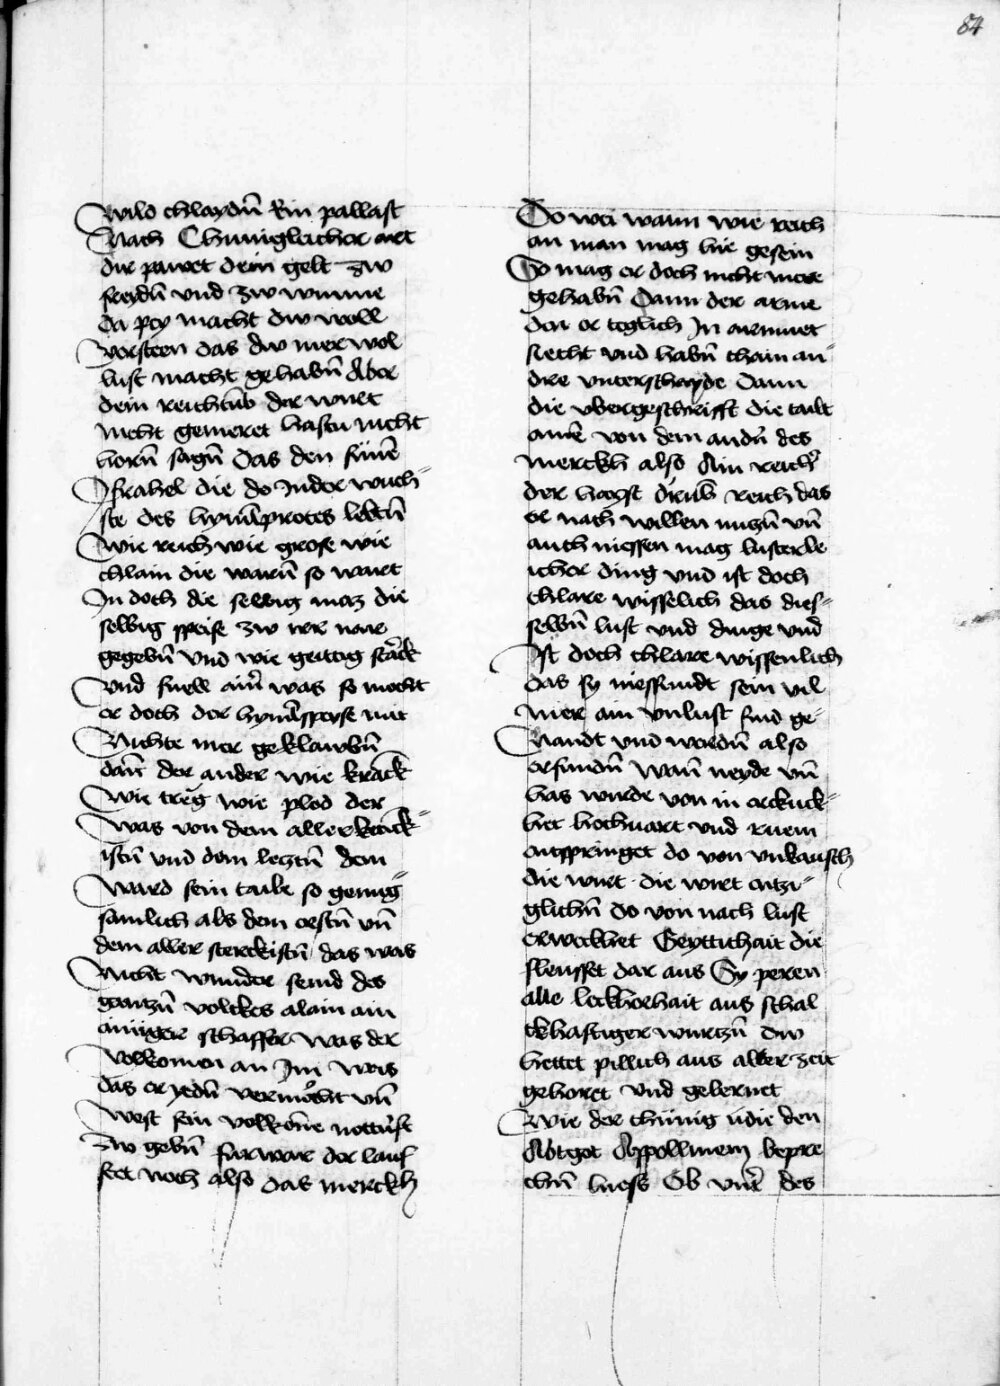 84
Wild chlaydūn Ein pallast
Nach Chunigleicher art
dir pawet dein gelt zw
freydn̄ vnd zw wunne
da pey macht dw woll
Versteen das dw mer wol
lust macht gehabn̄ Aber
dein reichtūb der wirt
nicht gemeret hastu nicht
horn̄ sagn̄ das den
Israhel die do Inder wuch⸗
ste des hymelprotes lebtn̄
Wie reich wie grose wie
chlain die warn̄ so wart
In doch die selbig maz die
selbig speise zw irr nar
gegebn̄ vnd wie geittig starck
vnd was so mocht
er doch der hymelspeyse mit
Nichte mer geklawbn̄
dan̄ der ander wie kranck
Wie treg wie plod der
Was von dem aller kranck⸗
istn̄ vnd dem letztn̄ dem
Ward sein taile so genug⸗
samlich als dem erstn̄ vn̄
dem aller sterckistn̄ das was
Nicht wunder seind des
gantzn̄ volckes alain ain
ainiger schaffer was der
Volkomen an Im was
das er yedn̄ vermocht vn̄
West sein volkome notturft
Zw gebn̄ furwar der lauf
stet noch also das merckh
Do wei wann wie reich
an man mag hie gesein
So mag er doch nicht mere
gehabn̄ Dann der arme
den er teglich In armuet
siecht vnd habn̄ chain an⸗
dre vnterschayde dann
die vbergeschrifft die tailt
ainē von dem andn̄ des
merckh also Ain reicher
der hayst darūb reich das
er nach willen nutzn̄ vn̄
auch niessen mag lusterle
icher ding vnd ist doch
chlare wisselich das dies⸗
selbn̄ lust vnd dinge vnd
Ist doch chlare wissenlich
das sy niessundt sein vil
mer am vnlust sind ge⸗
Nandt vnd werdn̄ also
erfundn̄ Wan̄ neyde vn̄
has wurde von in erckuck⸗
het hochuart vnd ruem
entspringet do von vnkeusch
die wirt die wirt entzi⸗
glichn̄ do von nach lust
erweckhet Geyttichait die
fleusset dar aus Sy peren
alle leckherhait aus schal
ckhaftiger wurtzn̄ dw
hettet pillich aus aller zeit
gehoret vnd gelernet
Wie der chunig den
Abtgot Appollinem bepre
chn̄ liess Ob vnter des